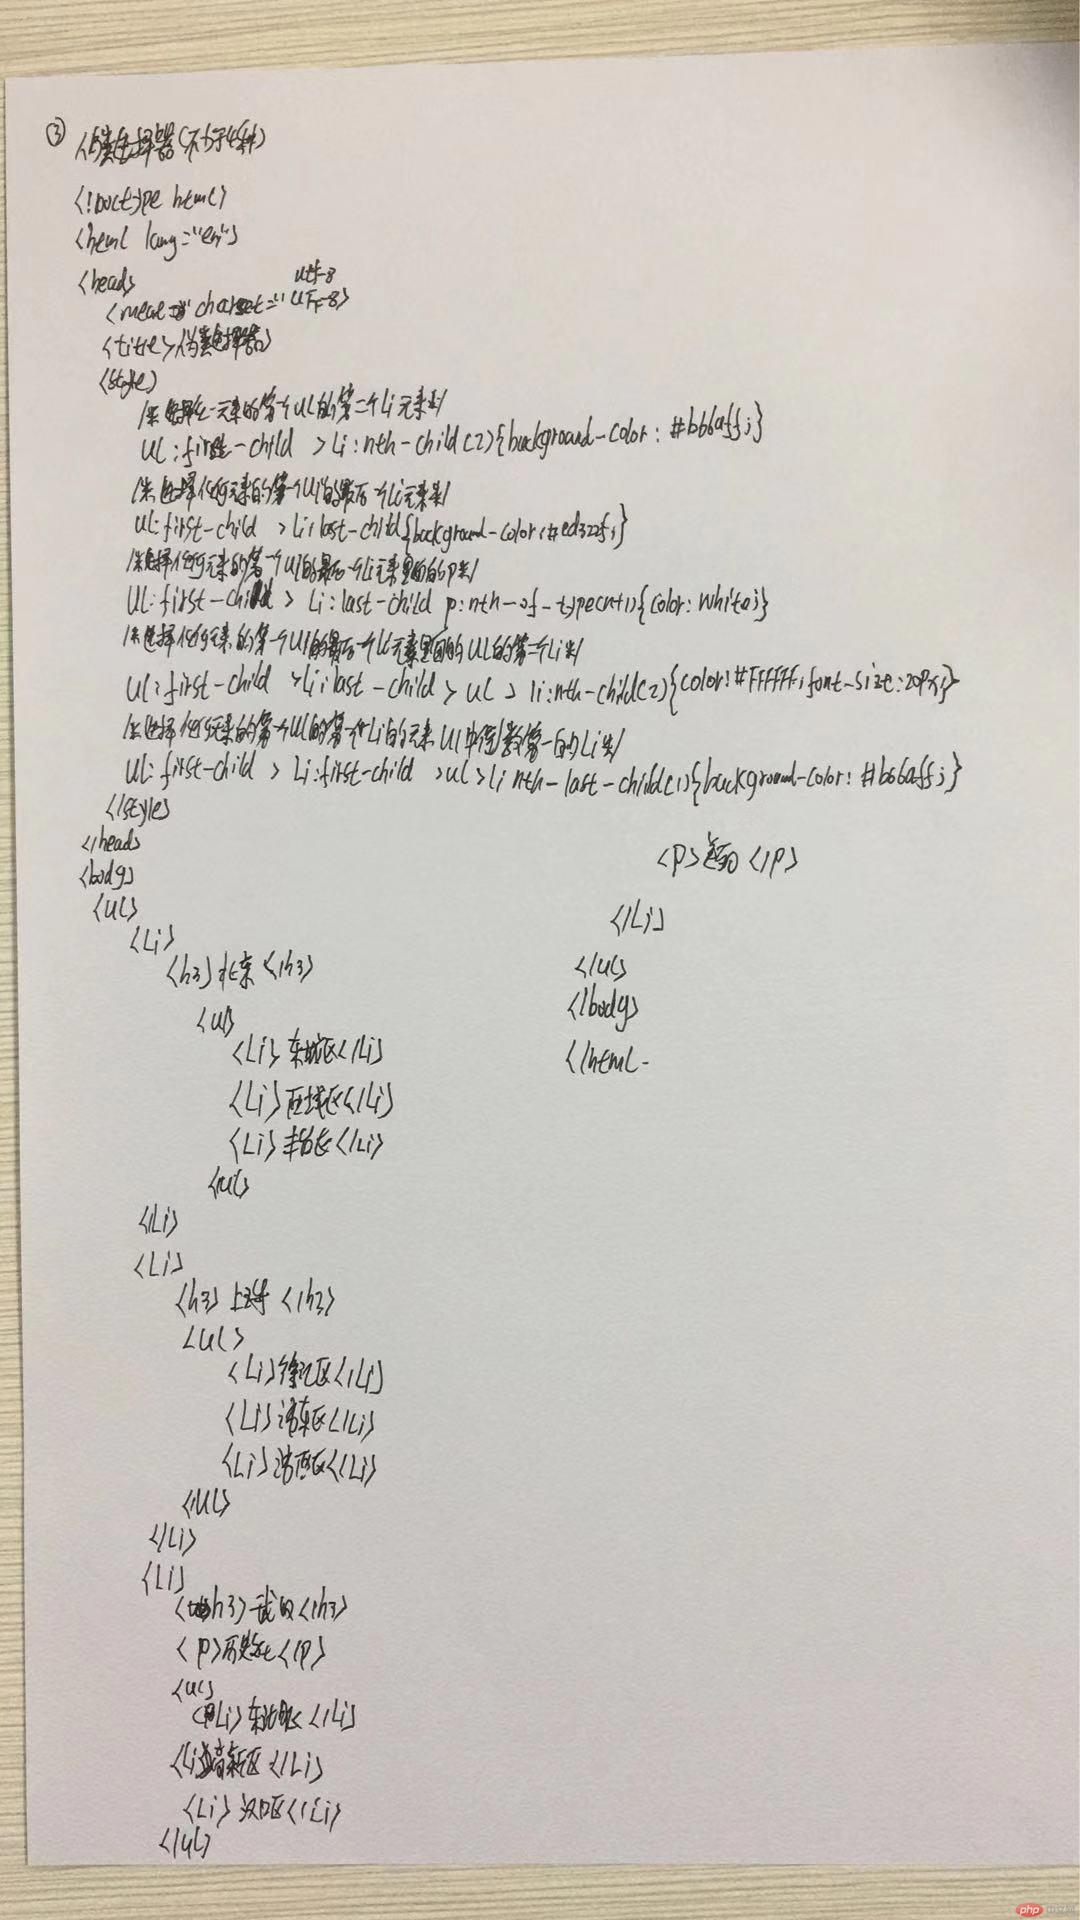 ③ 伪类选择器(不少于4种)
<!Doctype html>
<html lang="en">
<head>
utf-8
charset="UTF-8>
<title>伪类选择器>
<style>
/*选择 一元素的第一个UL的第二个Li元素*/
UL:first-child >Li:nth-child(2){background-color: #bb6aff;}
/*选择任何元素的第一个Ul的最后一个Li元素*/
UL:first-child >Li:last-child{background-color:#ed322f;}
/*选择任何元素的第一个Ul的最后一个Li元素里面的P*/
UL:first-child > Li:last-child p:nth-of-type(n+1){color:white;}
/*选择任何元素的第一个Ul的最后一个Li元素里面的UL的第二个Li*/
UL:first-child >Li:last-child> UL > li:nth-child(2){color:#FFFFFF;font-size:20px;}
/*选择任何元素的第一个Ul的第一个Li的元素UL中倒数第一的Li*/
UL:first-child > Li:first-child >UL>Li nth-last-child(1){background-color: #bb6aff;}
</style>
</head>
<body>
<UL>
<Li>
<h3>北京</h3>
<ul>
<Li>东城区</Li>
<Li>西城区</Li>
<Li>丰台区</Li>
</UL>
</Li>
<Li>
<h3>上海</h3>
<UL>
<Li>徐汇区</Li>
<Li>浦东区</Li>
<Li>浦西区</Li>
</UL>
</Li>
<Li>
h3>武汉</h3>
<p>历史</p>
<UL>
Li> </Li>
<Li>高新区</Li>
<Li>汉口区</Li>
</UL>
<P> </P>
</Li>
</UL>
</body>
</html
php